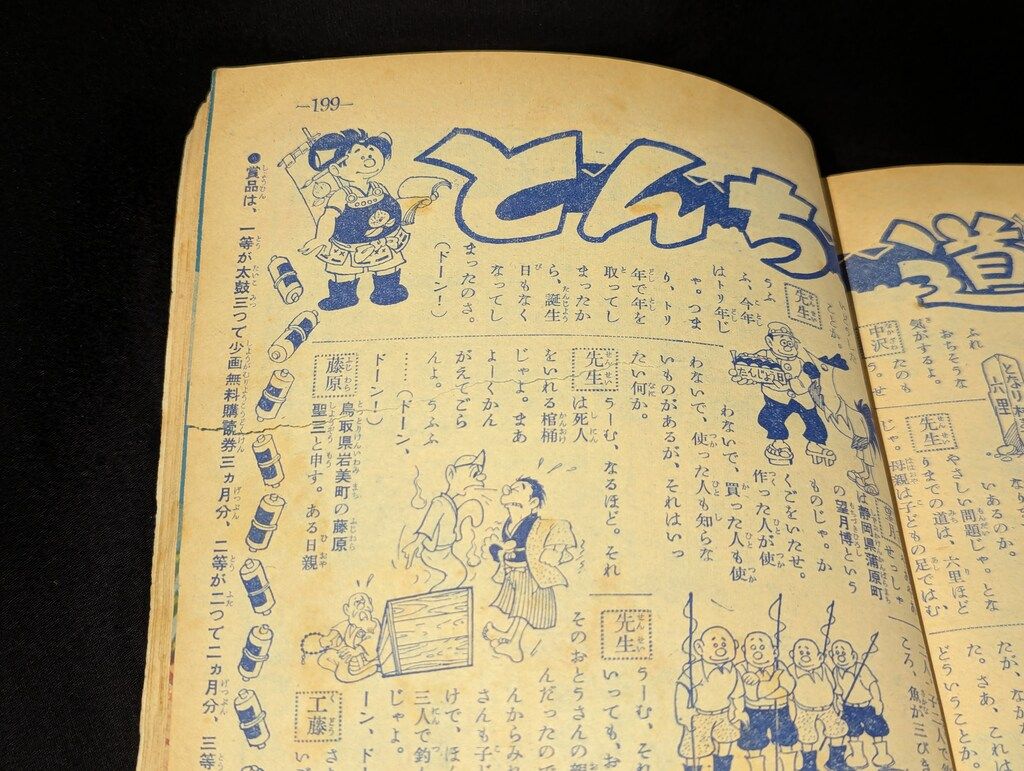 —199—
とんち
道
先生
うふ
ふ、今年
はトリ年じ
ゃ。つま
り、トリ
年で年を
取ってし
まったか
ら、誕生
日もなく
なってし
まったのさ。
(ドーン！)
たんじょ日
は静岡県蒲原町
の望月博という
ものじゃ。か
くごをいたせ。
作った人が使
わないで、買った人も使
わないで、使った人も知らな
いものがあるが、それはいっ
たい何か。
先生
うーむ、なるほど。それ
は死人
をいれる棺桶
じゃよ。まあ
よーくかん
がえてごら
んよ。うふふ
……。(ドーン、
ドーン！)
藤原
鳥取県岩美町の藤原
聖三と申す。ある日親
先生
うーむ、それ
いっても、お
そのおとうさんの親
んだったので
んからみれ
さんも子ど
けで、ほん
三人で釣
じゃよ。
ーン、ド
工藤
さ
●賞品は、一等が太鼓三つで小画無料購読券三ヵ月分、二等が二つで二ヵ月分、三等
となり村
六里
ふれ
おちそうな
気がするよ。
中沢
たのも
う。せ
いあるのか。
先生
やさしい問題じゃ。とな
りまでの道は、六里ほど
じゃ。母親は子どもの足ではむ
たが、な
た。さあ、これは
どういうことか。
ころ、魚が三びき